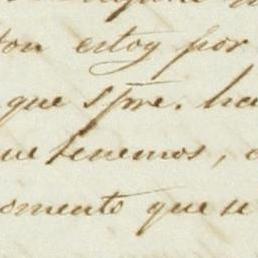 ton estoy por
que spre. ha
que tenemos,
omento que se